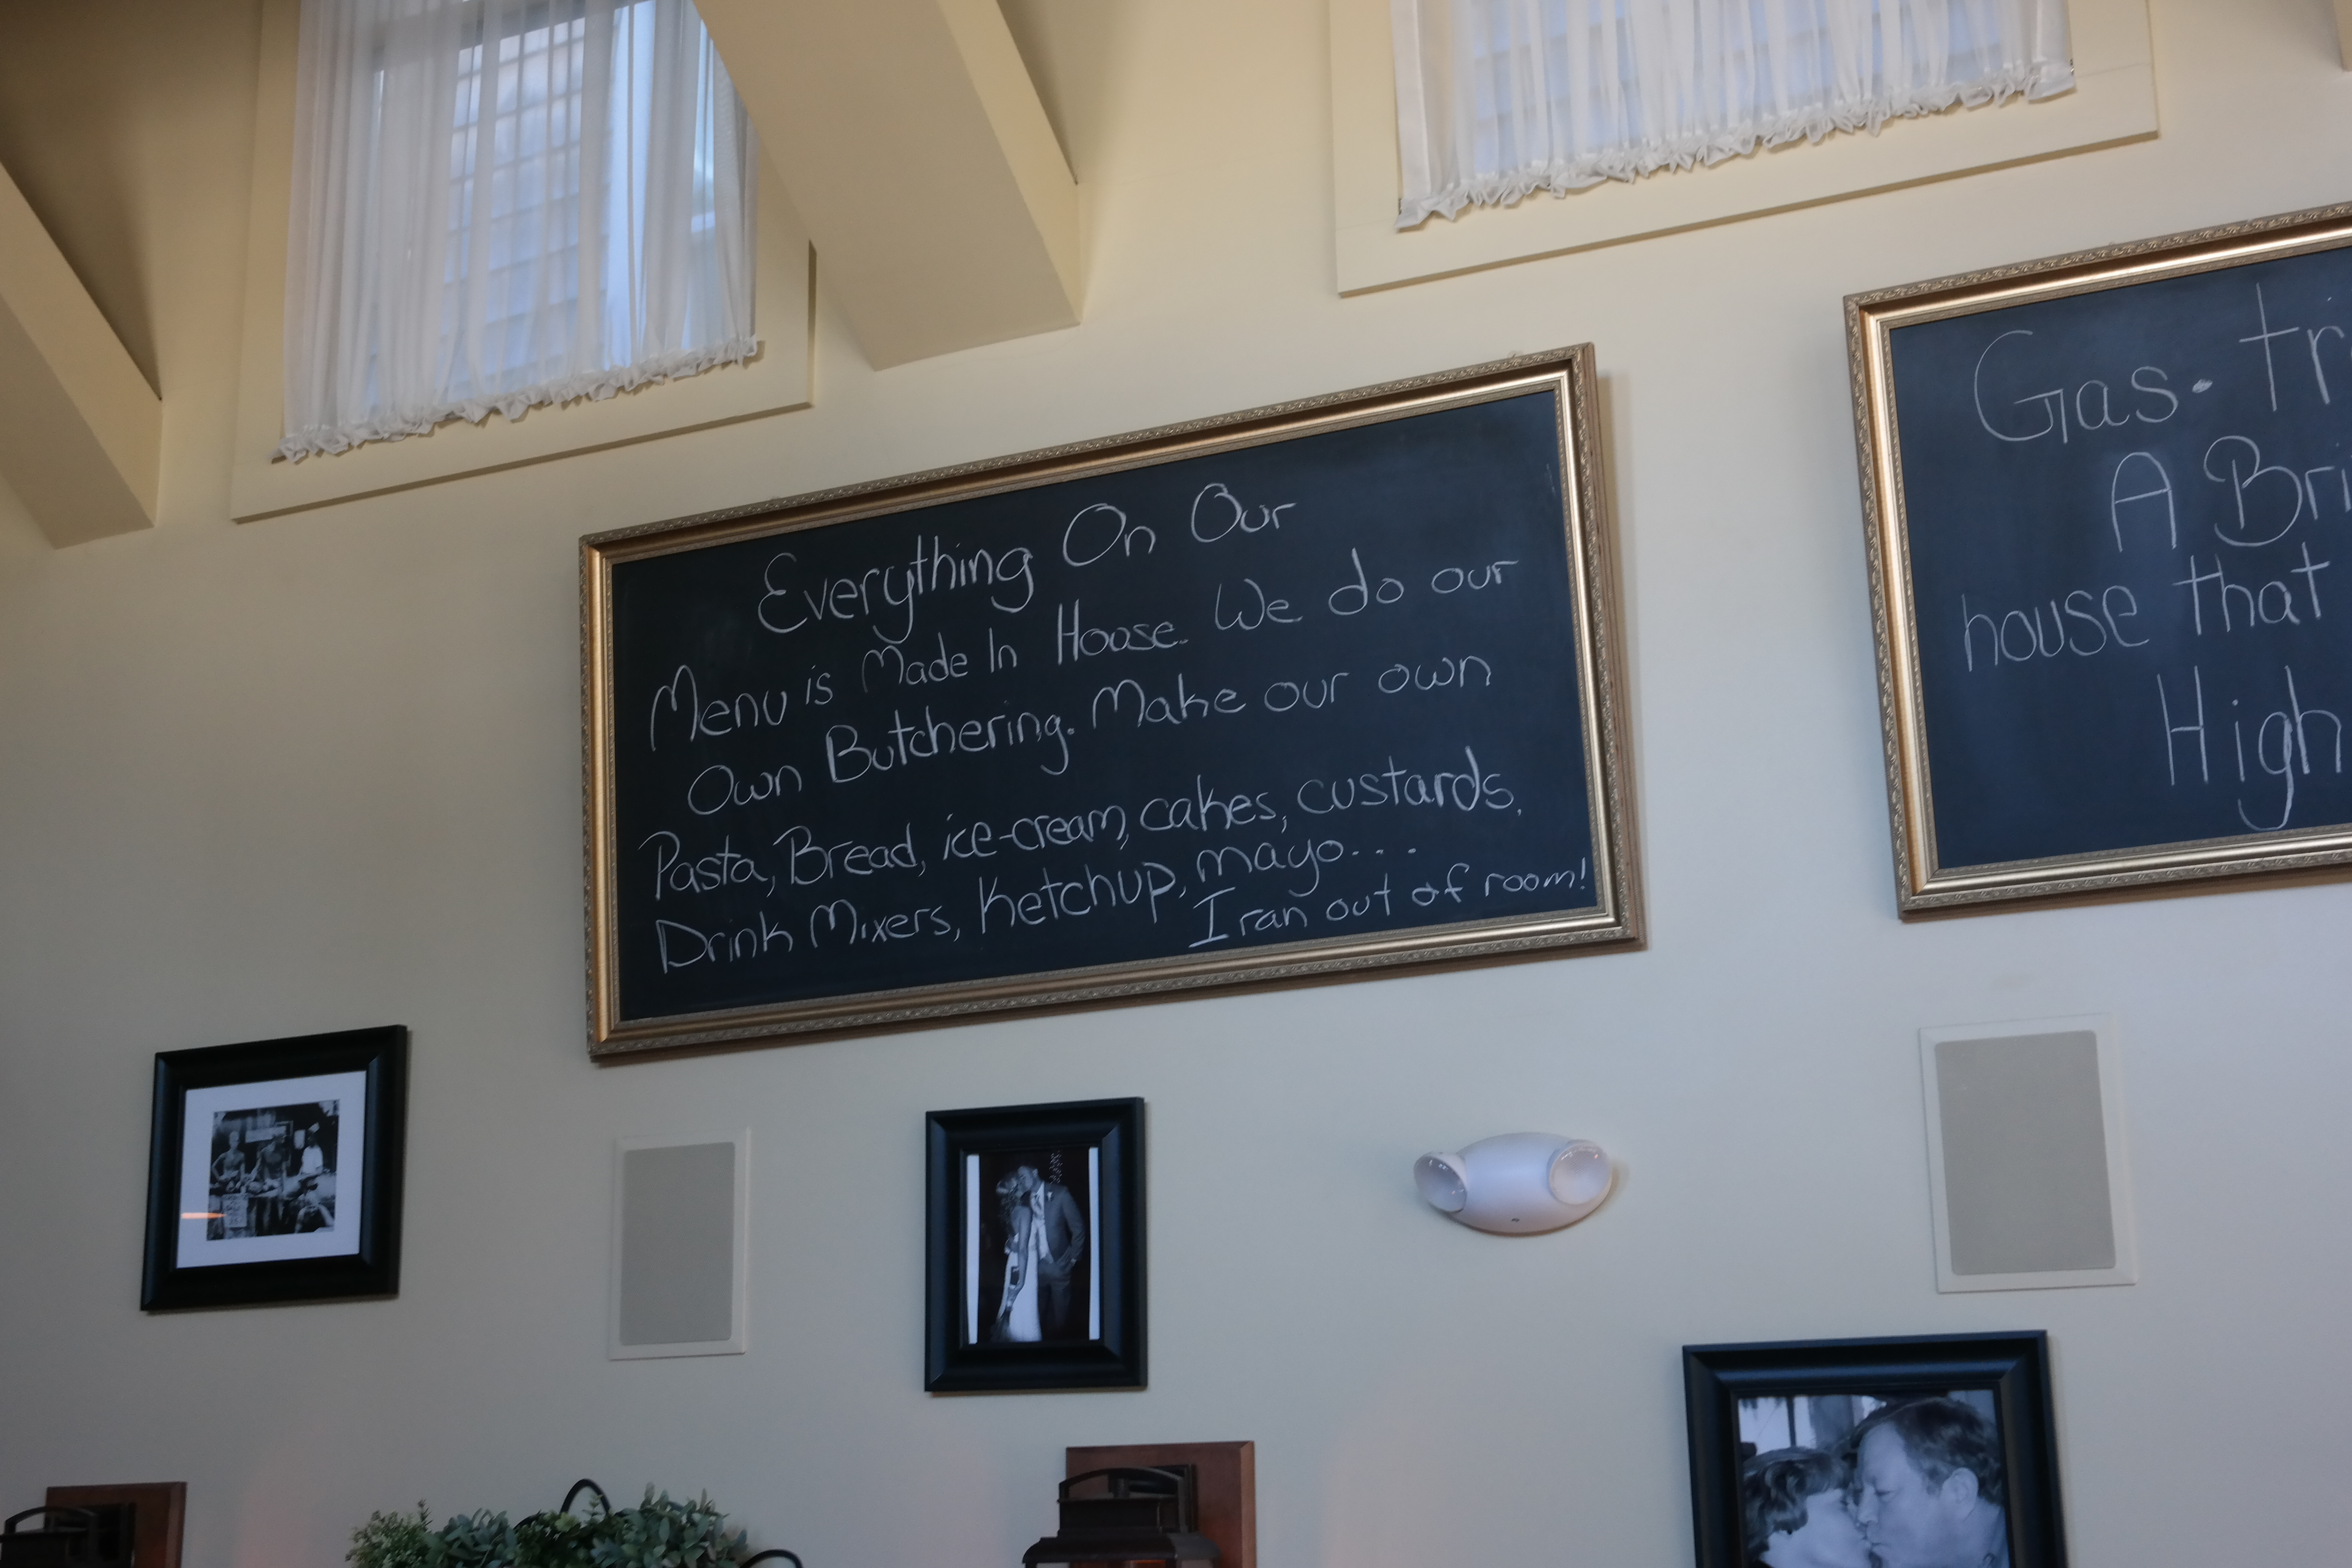 Everything On Our
Menu is Made In House. We do our
Own Butchering. Make our own
Pasta, Bread, ice-cream, cakes, custards,
Drink Mixers, Ketchup, mayo...
I ran out of room!
Gas·tr
A Bri
house that
High